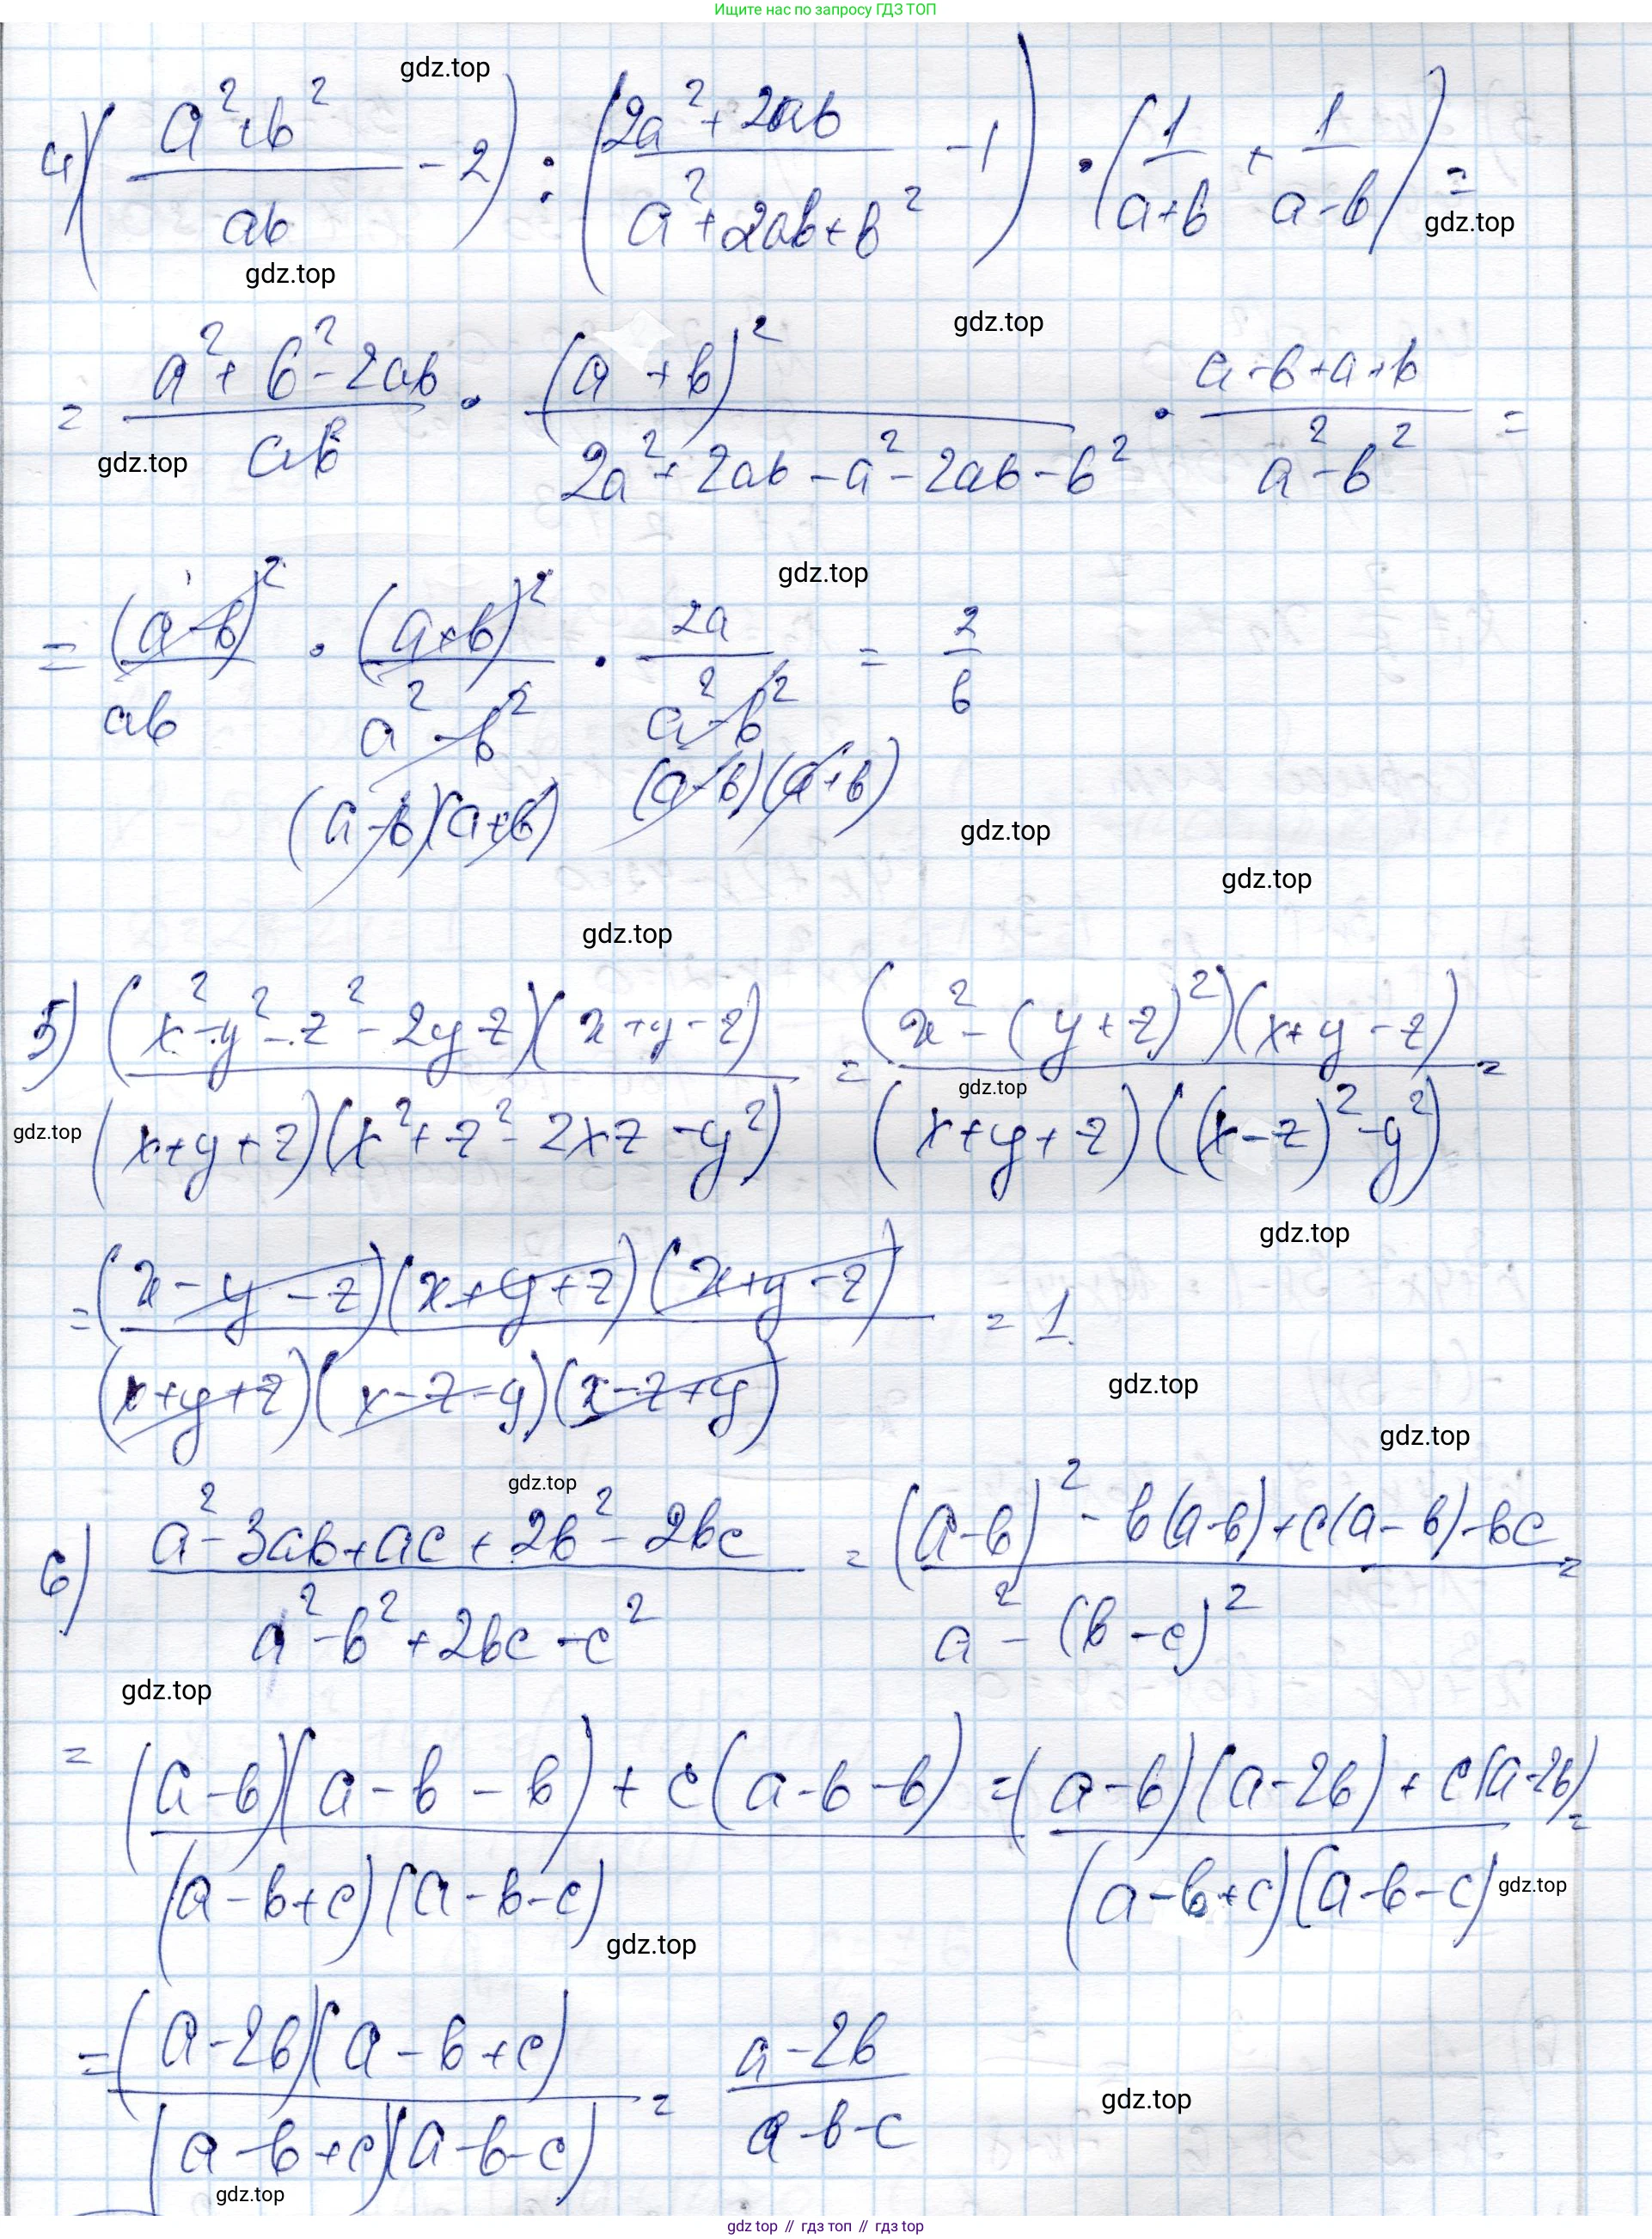 Ищите нас по запросу ГДЗ ТОП
gdz.top
4) ((a²+b²)/(ab) - 2) : ((2a²+2ab)/(a²+2ab+b²) - 1) · (1/(a+b) + 1/(a-b)) =
gdz.top
gdz.top
gdz.top
= (a²+b²-2ab)/(ab) · (a+b)²/(2a²+2ab-a²-2ab-b²) · (a-b+a+b)/(a²-b²) =
gdz.top
gdz.top
= (a-b)²/(ab) · (a+b)²/(a²-b²) · 2a/(a²-b²) = 2/b
(a-b)(a+b) (a-b)(a+b)
gdz.top
gdz.top
gdz.top
5) ((x²-y²-z²-2yz)(x+y-z))/((x+y+z)(x²+z²-2xz-y²)) = ((x²-(y+z)²)(x+y-z))/((x+y+z)((x-z)²-y²)) =
gdz.top
gdz.top
gdz.top
= ((x-y-z)(x+y+z)(x+y-z))/((x+y+z)(x-z-y)(x-z+y)) = 1
gdz.top
gdz.top
gdz.top
6) (a²-3ab+ac+2b²-2bc)/(a²-b²+2bc-c²) = ((a-b)²-b(a-b)+c(a-b)-bc)/(a²-(b-c)²) =
gdz.top
= ((a-b)(a-b-b)+c(a-b-b))/((a-b+c)(a-b-c)) = ((a-b)(a-2b)+c(a-2b))/((a-b+c)(a-b-c)) =
gdz.top
gdz.top
= ((a-2b)(a-b+c))/((a-b+c)(a-b-c)) = (a-2b)/(a-b-c)
gdz.top
gdz.top
gdz top // гдз топ // гдз top